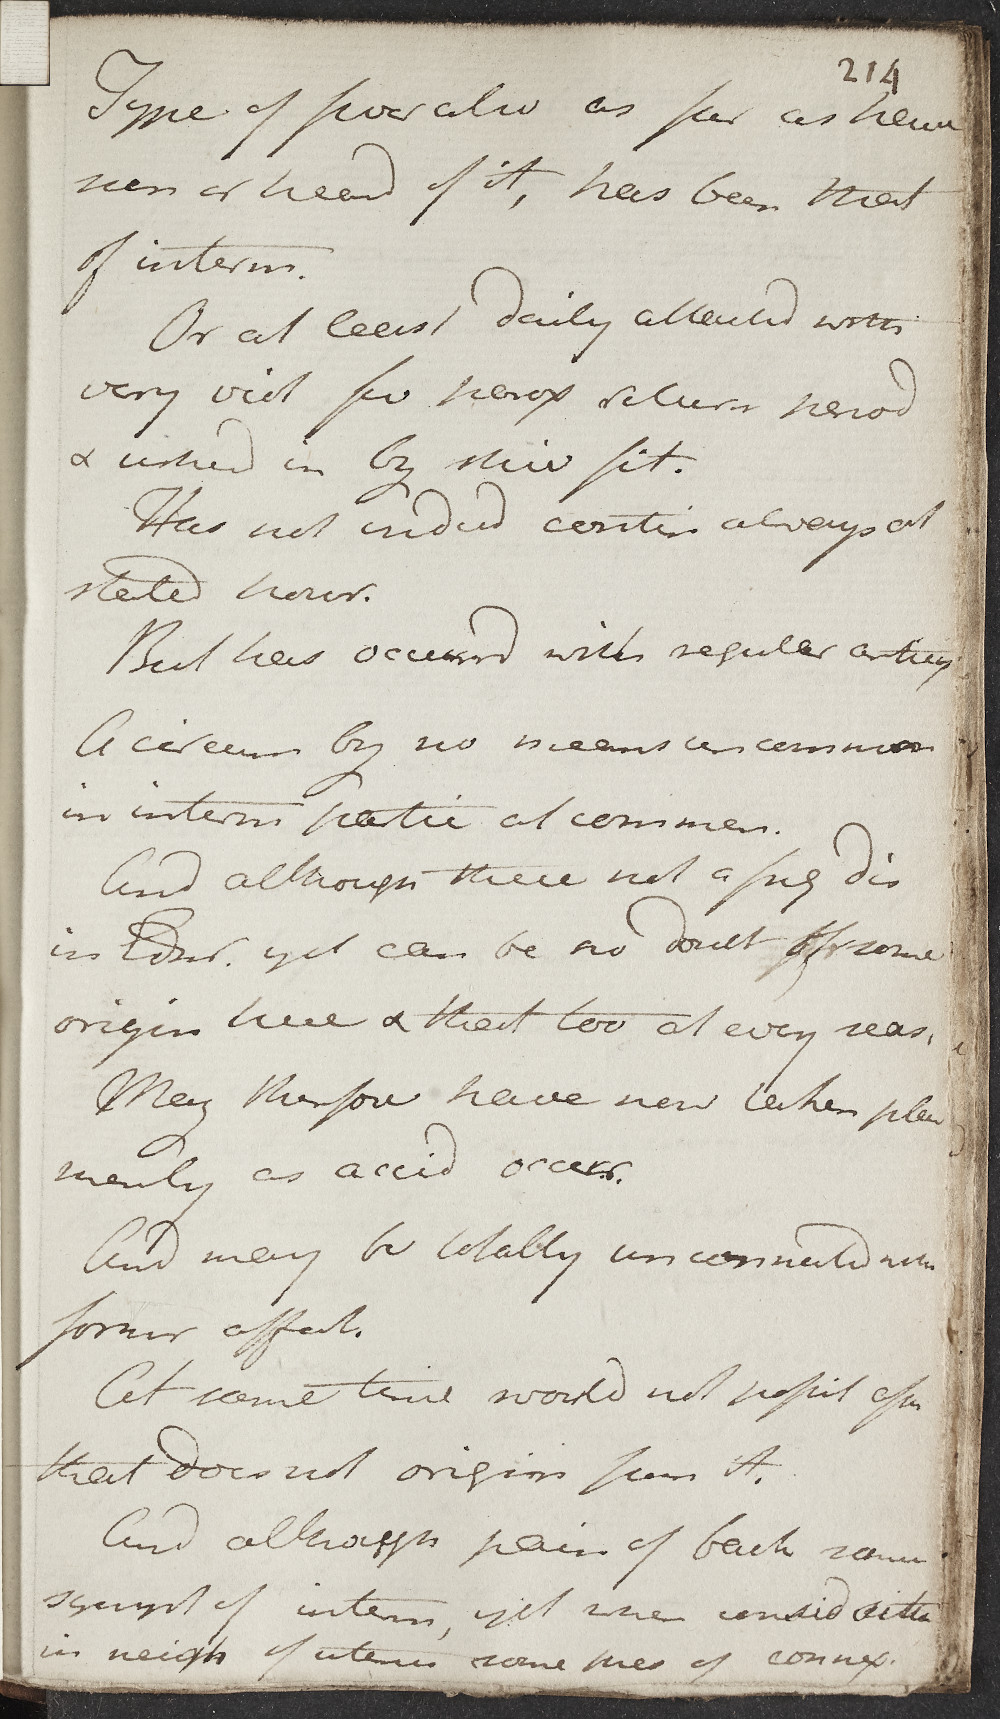 214
Type of fever also as far as have
seen or heard of it, has been that
of interm.
Or at least daily attend with
very viol fev parox return period
& usherd in by shiv fit.
Has not indeed contin always at
stated hour.
But has occurrd with regular
A circum by no means uncommon
in interm partic at commen.
And although there not a freq dis
in Edinr. yet can be no doubt of some
origin here & that too at every seas.
May therefore have now taken place
merely as accid occurr.
And may be totally unconnected with
former affect.
At same time would not posit
that does not origin from it.
And although pain of back some
sympt of interm, yet when consid
in neigh of uterus some pres of connex.